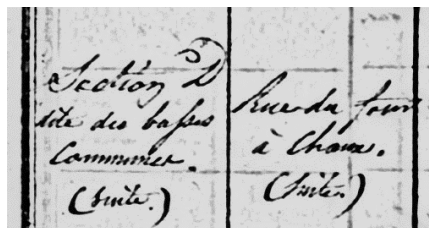 Section D
dite des basses
Communes.
(suite.)
Rue du four
à Chaux.
(suite.)